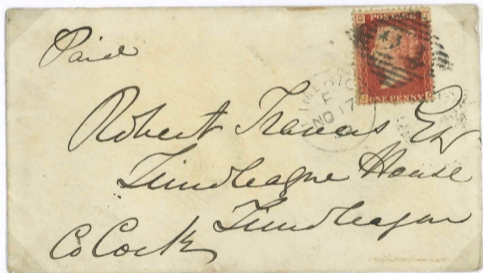 Paid
POSTAGE
ONE PENNY
Robert Travers Esq
Timoleague House
Timoleague
Co Cork